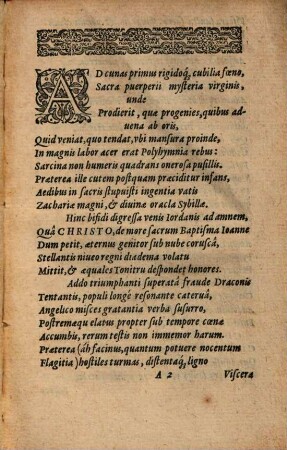 AD cunas primus rigidoq́, cubilia fœno,
Sacra puerperij mysteria virginis,
unde
Prodierit, quæ progenies, quibus ad-
uena ab oris,
Quid veniat, quo tendat, vbi mansura proinde,
In magnis labor acer erat Polyhymnia rebus:
Sarcina non humeris quadrans onerosa pusillis.
Præterea ille cutem postquam præciditur infans,
Aedibus in sacris stupuisti ingentia vatis
Zachariæ magni, & diuinæ oracla Sibyllæ.
Hinc bifidi digressa venis Iordanis ad amnem,
Quâ CHRISTO, de more sacrum Baptisma Ioanne
Dum petit, æternus genitor sub nube coruscâ,
Stellantis niueo regni diadema volatu
Mittit, & æquales Tonitru despondet honores.
Addo triumphanti superatâ fraude Draconis
Tentantis, populi longè resonante cateruâ,
Angelico misces gratantia verba susurro,
Postremaqu elatus propter sub tempore cœnæ
Accumbis, rerum testis non immemor harum.
Præterea (áh facinus, quantum potuere nocentum
Flagitia) hostiles turmas, distentaq́, ligno
A 2 Viscera